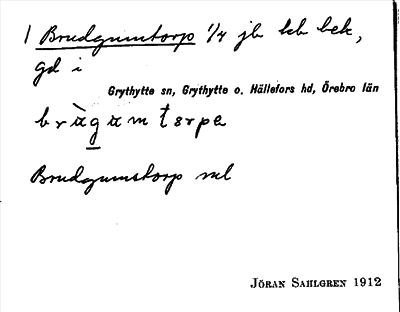 1 Brudgumtorp 1/4 jb kb bek,
gd i
Grythytte sn, Grythytte o. Hällefors hd, Örebro län
Brudgumstorp ml
JÖRAN SAHLGREN 1912